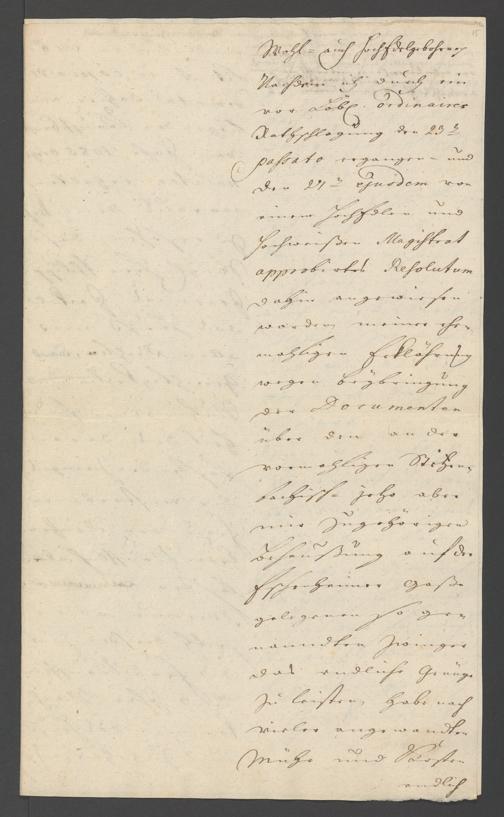 Wohl- auch HochEdelgebohrne
Nachdem ich durch ein
vor Löbl. ordinairer
Rathschlagung den 23t
passato ergangen- und
den 27t ejusdem von
einem HochEdlen und
Hochweisen Magistrat
approbirtes Resolutum
dahin angewiesen
worden, meiner ehe-
mahligen Erklährung
wegen Beybringung
der Documenten
über den an der
vormahligen
bachische jetzo aber
mir Zugehörigen
Behaußung auf der
Eschenheimer Gaße
gelegenen so ge-
nandten Zwinger
das endliche Genüge
Zu leisten, habe nach
vieler angewandten
Mühe und Kosten
endlich